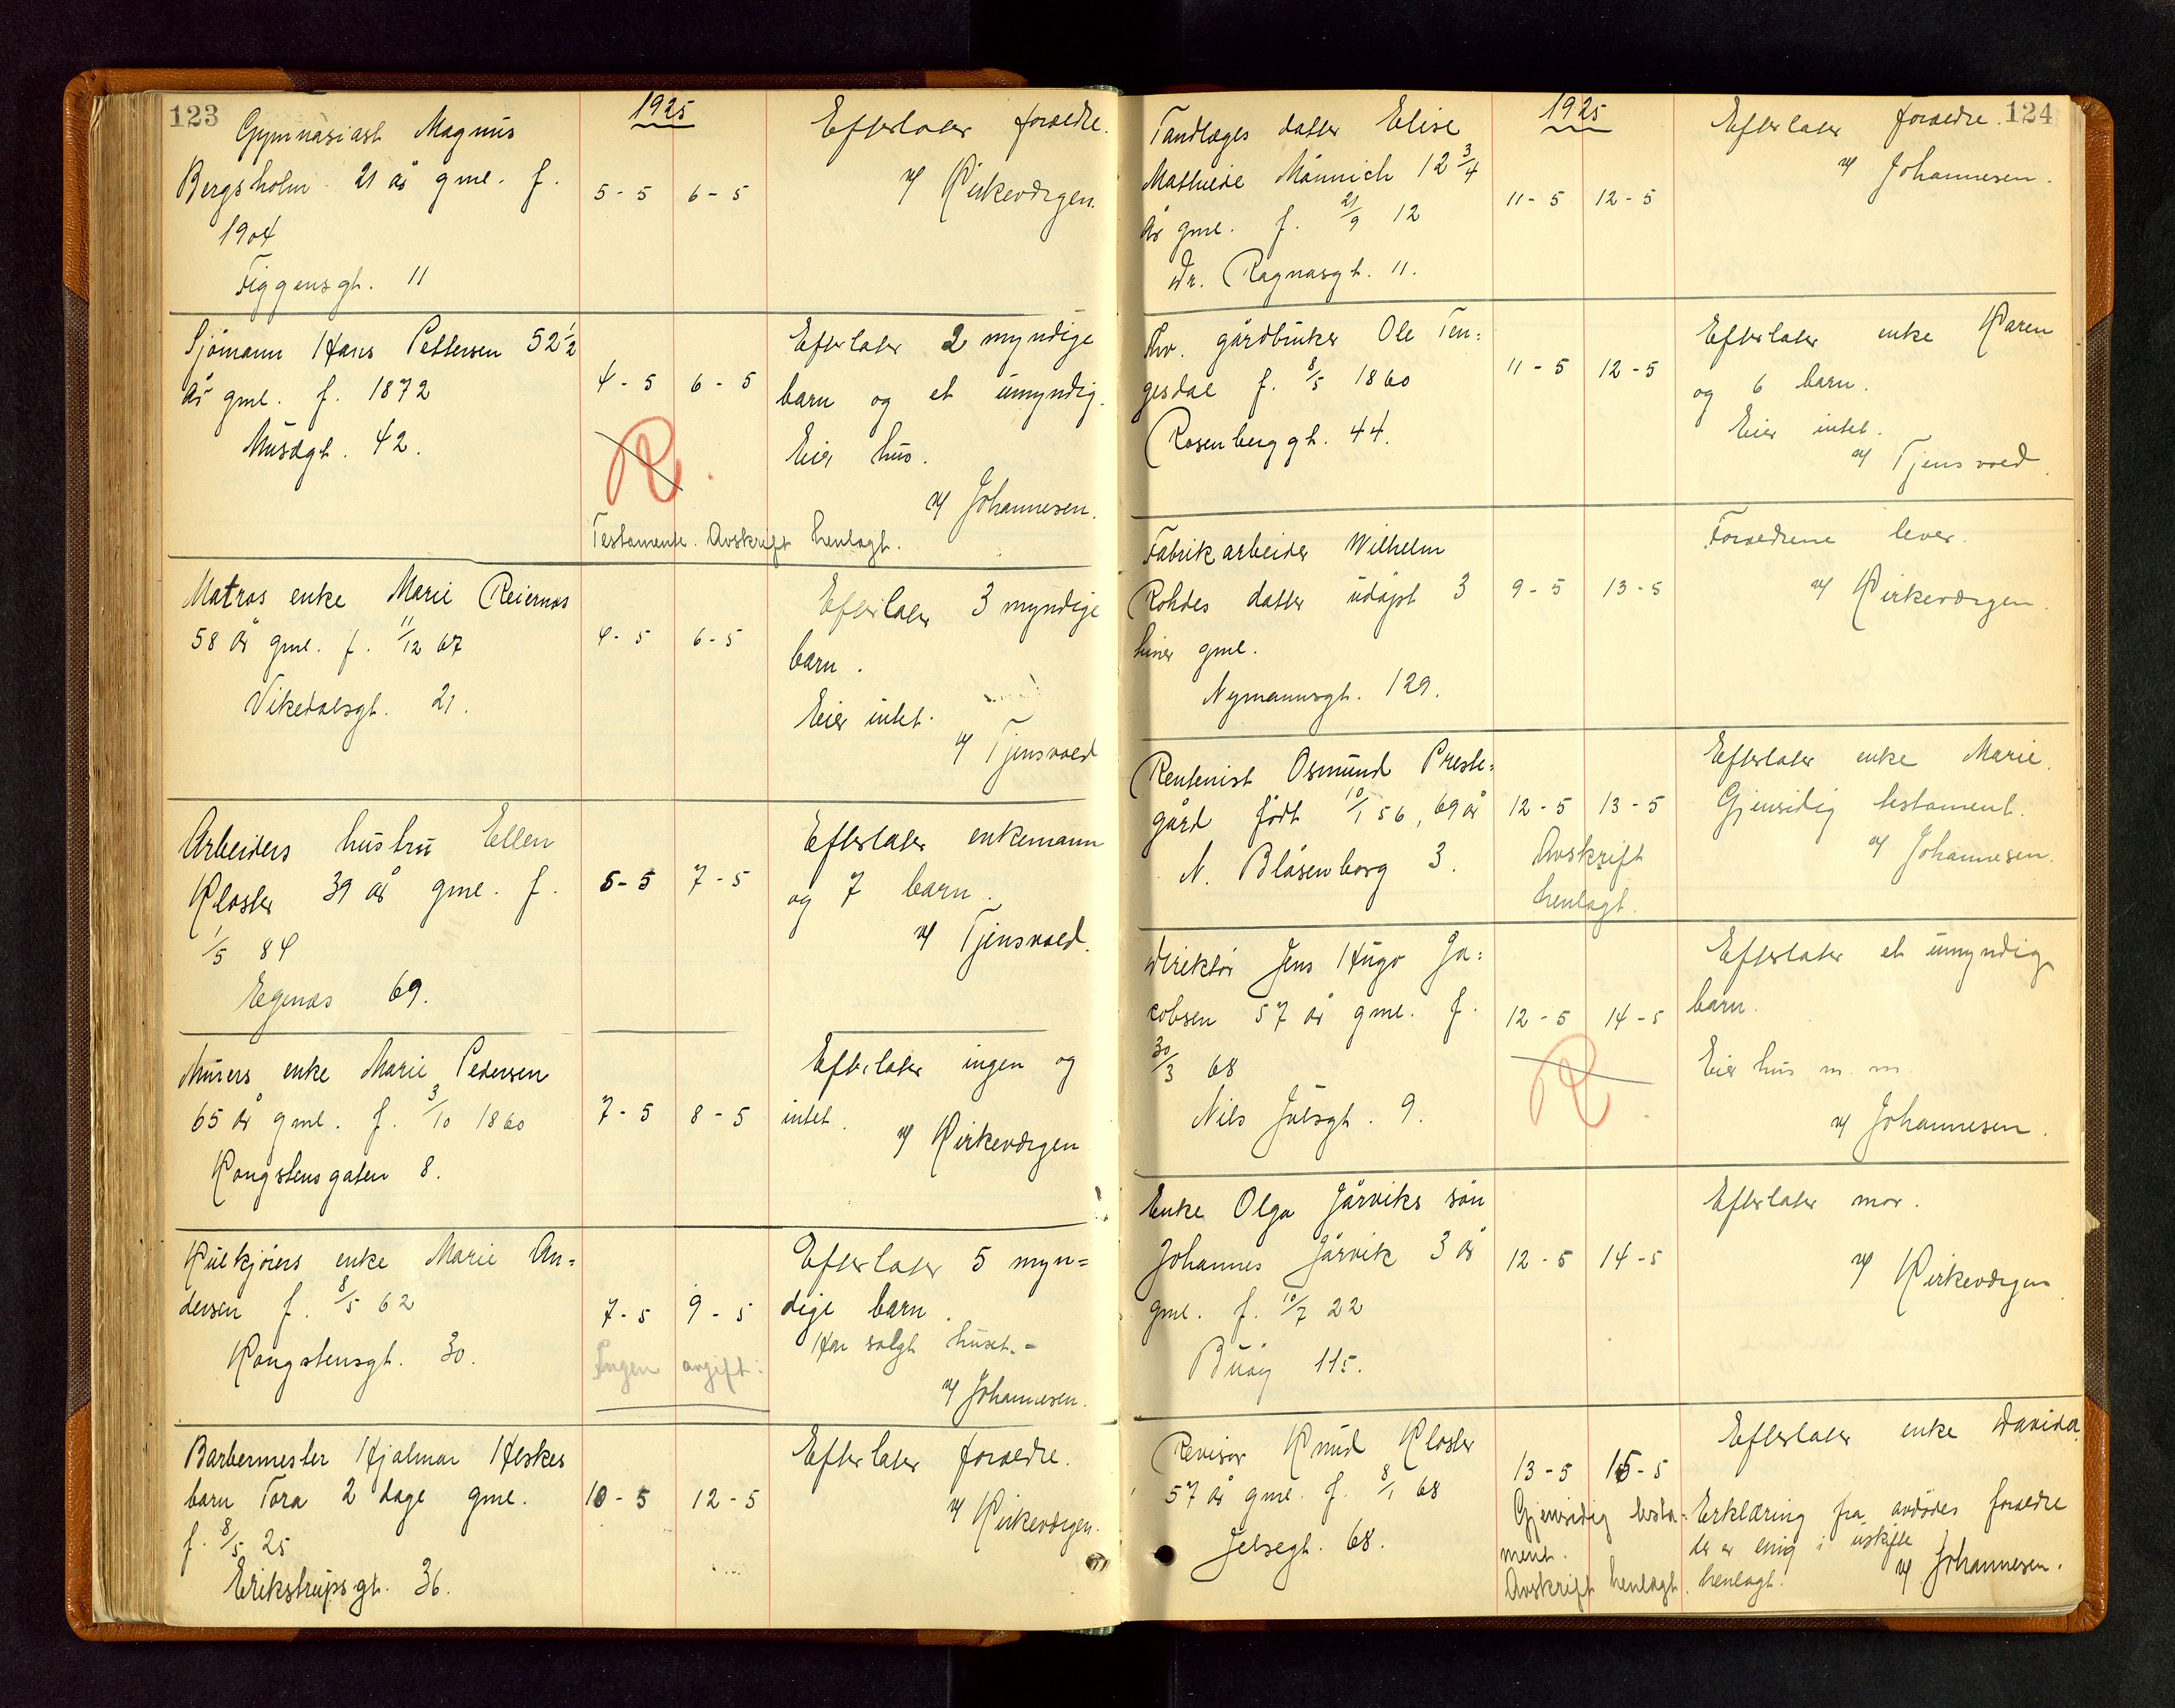 123
1925
Gymnasiast Magnus
Bergsholm 21 år gml. f.
1904
Figgensgt. 11
5-5
6-5
Efterlater forældre.
v/ Kirkevergen.
Sjömann Hans Pettersen 52 1/2
år gml. f. 1872
Musægt. 42.
4-5
6-5
R.
Efterlater 2 myndige
barn og et umyndig.
Eier hus.
v/ Johannesen.
Testamente. Avskrift henlagt.
Matros enke Marie Reiernæs
58 år gml. f. 11/12 67
Vikedalsgt. 21.
4-5
6-5
Efterlater 3 myndige
barn.
Eier intet.
v/ Tjensvold
Arbeiders hustru Ellen
Kloster 39 år gml. f.
1/5 84
Egenæs 69.
5-5
7-5
Efterlater enkemann
og 7 barn.
v/ Tjensvold.
Murers enke Marie Pedersen
65 år gml. f. 3/10 1860
Kongstensgaten 8.
7-5
8-5
Efterlater ingen og
intet.
v/ Kirkevergen
Kulkjörers enke Marie An=
dersen f. 8/5 62
Kongstensgt. 30.
7-5
9-5
Ingen avgift:
Efterlater 5 myn=
dige barn.
Har solgt huset.-
v/ Johannesen.
Barbermester Hjalmar Heskes
barn Tora 2 dage gml.
f. 8/5 25
Erikstrupsgt. 36.
10-5
12-5
Efterlater forældre.
v/ Kirkevergen.
124
1925
Tandlæges datter Elise
Mathilde Männich 12 3/4
år gml. f. 21/9 12
Dr. Ragnasgt. 11.
11-5
12-5
Efterlater forældre.
v/ Johannesen.
Fhv. gårdbruker Ole Ten=
gesdal f. 8/5 1860
Rosenberggt. 44.
11-5
12-5
Efterlater enke Karen
og 6 barn.
Eier intet.
v/ Tjensvold.
Fabrikarbeider Wilhelm
Rohdes datter udöpt 3
timer gml.
Nymannsgt. 129.
9-5
13-5
Forældrene lever.
v/ Kirkevergen.
Rentenist Osmund Preste=
gård födt 10/1 56, 69 år
N. Blåsenborg 3.
12-5
13-5
Avskrift
henlagt.
Efterlater enke Marie.
Gjensidig testament.
v/ Johannesen.
Direktör Jens Hugo Ja=
cobsen 57 år gml. f.
30/3 68
Nils Juelsgt. 9.
12-5
14-5
R.
Efterlater et umyndig
barn.
Eier hus m. m.
v/ Johannesen.
Enke Olga Jårviks sön
Johannes Jårvik 3 år
gml. f. 10/7 22
Buöy 115.
12-5
14-5
Efterlater mor.
v/ Kirkevergen
Revisor Knud Kloster
57 år gml. f. 8/1 68
Jelsegt. 68.
13-5
15-5
Gjensidig testa-
ment.
Avskrift henlagt.
Efterlater enke Davida.
Erklæring fra avdödes forældre
der er enig i uskifte
henlagt.
v/ Johannesen.